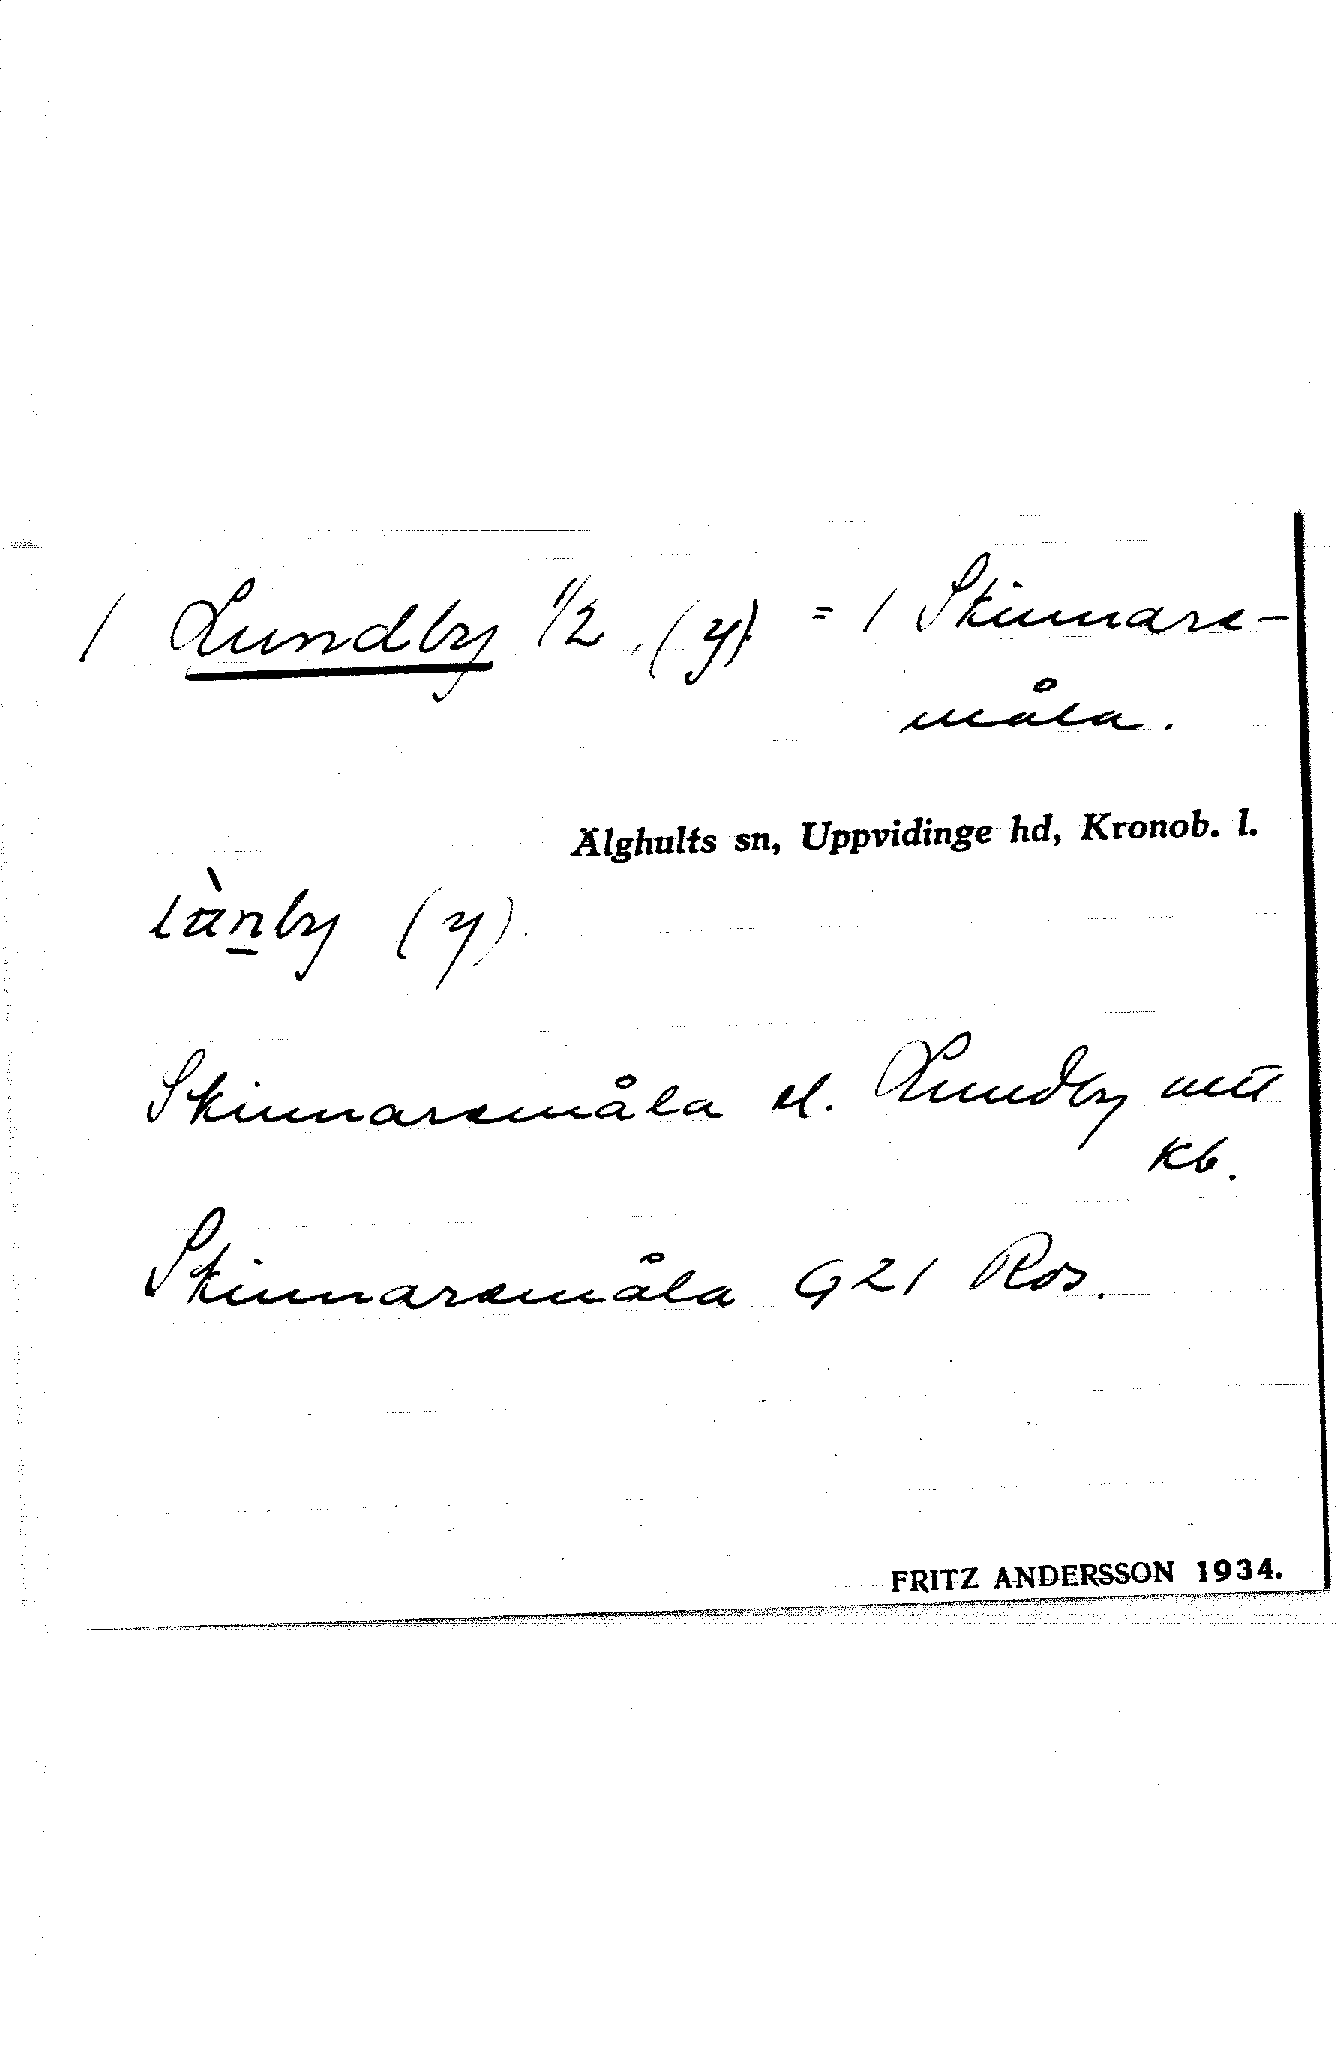 / Lundby 1/2 (y) = / Skinnars-
måla.
Älghults sn, Uppvidinge hd, Kronob. l.
(y)
Skinnarsmåla el. Lundby
Kb.
Skinnarsmåla G21 Ros.
FRITZ ANDERSSON 1934.